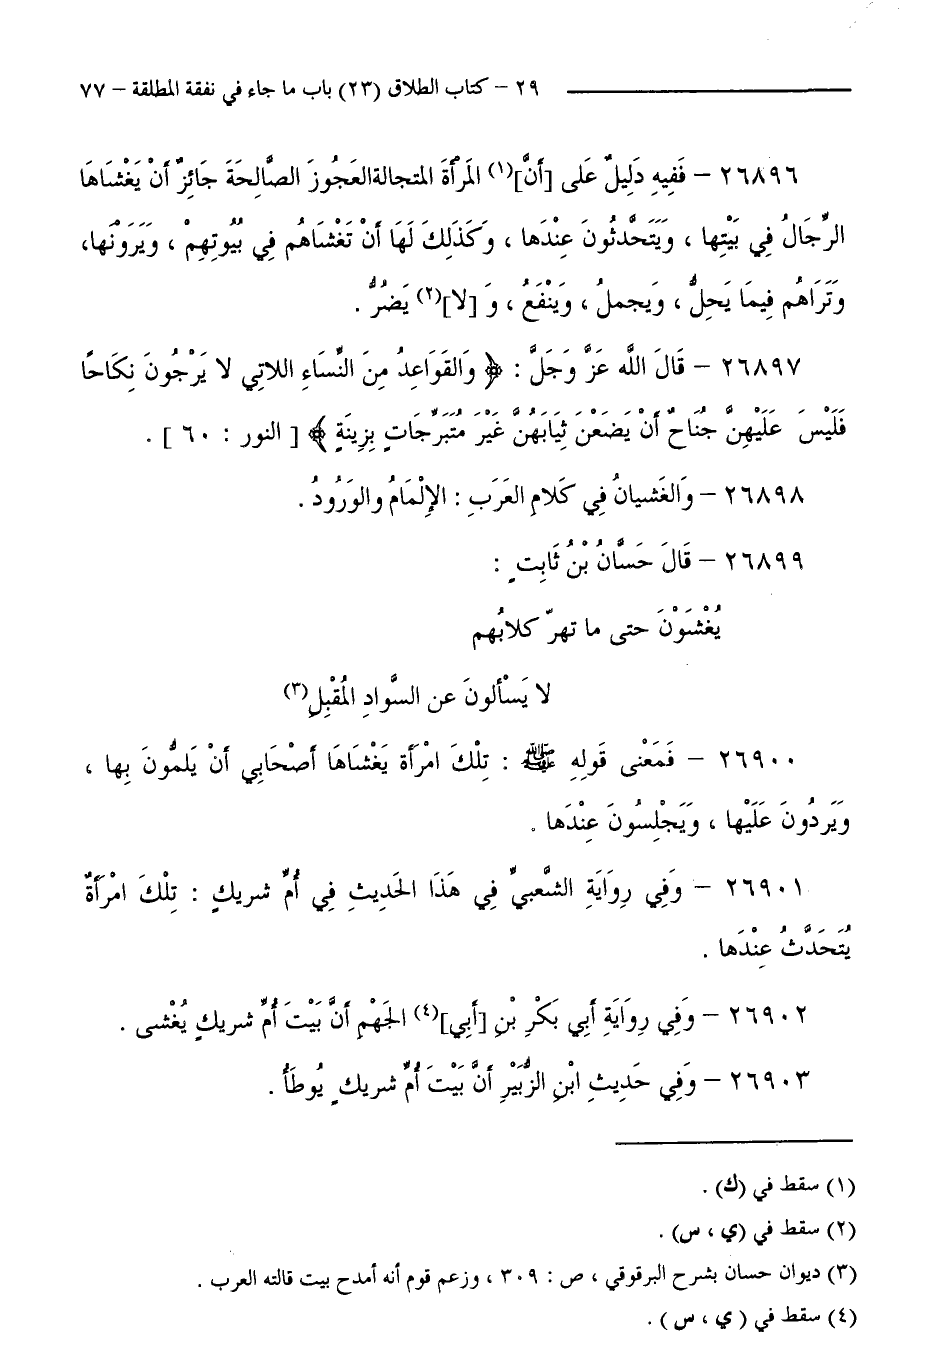 ٢٩ – كتاب الطلاق (٢٣) باب ما جاء في نفقة المطلقة – ٧٧
٢٦٨٩٦ – فَفِيهِ دَلِيلٌ عَلى [أَنَّ](١) المَرْأَةَ المتجالةالعَجُوزَ الصَّالِحَةَ جَائِزٌ أَنْ يَغْشَاهَا
الرِّجَالُ فِي بَيْتِها ، وَيَتَحَّدثُونَ عِنْدَها ، وَكَذَلِكَ لَهَا أَنْ تَغْشَاهُم فِي بُيُوتِهِمْ ، وَيَرَوْنَها،
وَتَرَاهُم فِيمَا يَحِلُّ ، وَيجملُ ، وَيَنْفَعُ ، وَ [لا](٢) يَضُرُّ .
٢٦٨٩٧ – قَالَ اللَّه عَزَّ وَجَلَّ : ﴿ وَالقَوَاعِدُ مِنَ النِّسَاءِ اللاتِي لا يَرْجُونَ نِكَاحًا
فَلَيْسَ عَلَيْهِنَّ جُنَاحٌ أَنْ يَضَعْنَ ثِيَابَهُنَّ غَيْرَ مُتَبَرِّجَاتٍ بِزِينَةٍ ﴾ [ النور : ٦٠ ] .
٢٦٨٩٨ – وَالغَشيانُ فِي كَلامِ العَرَبِ : الإِلْمَامُ والوَرُودُ .
٢٦٨٩٩ – قَالَ حَسَّانُ بْنُ ثَابِتٍ :
يُغْشَوْنَ حتى ما تهرّ كلابُهم
لا يَسْألونَ عن السَّوادِ المُقْبِلِ(٣)
٢٦٩٠٠ – فَمَعْنى قَولِهِ ﷺ : تِلْكَ امْرَأَة يَغْشَاهَا أَصْحَابِي أَنْ يَلمُّونَ بِها ،
وَيَردُونَ عَلَيْها ، وَيَجْلِسُونَ عِنْدَها .
٢٦٩٠١ – وَفِي رِوَايَةِ الشَّعبيِّ فِي هَذَا الحَديثِ فِي أُمِّ شريكٍ : تِلْكَ امْرَأَةٌ
يُتَحَدَّثُ عِنْدَها .
٢٦٩٠٢ – وَفِي رِوَايَةِ أَبِي بَكْرِ بْنِ [أَبِي](٤) الجَهْمِ أَنَّ بَيْتَ أُمِّ شريكٍ يُغْشى .
٢٦٩٠٣ – وَفِي حَدِيثِ ابْنِ الزُّبَيْرِ أَنَّ بَيْتَ أُمِّ شريكٍ يُوطَأُ .
(١) سقط في (ك) .
(٢) سقط في (ي ، س) .
(٣) ديوان حسان بشرح البرقوقي ، ص : ٣٠٩ ، وزعم قوم أنه أمدح بيت قالته العرب .
(٤) سقط في ( ي ، س ) .